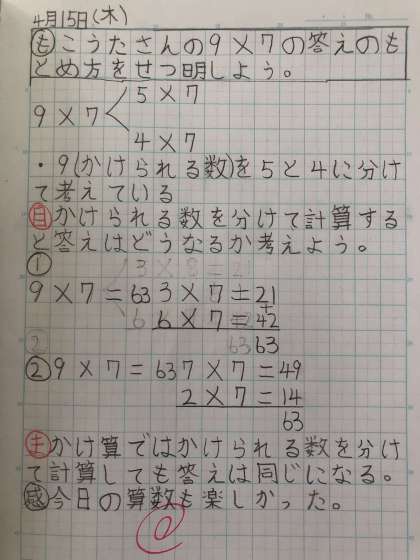 4月15日(木)
もこうたさんの9×7の答えのも
とめ方をせつ明しよう。
5×7
9×7
4×7
・9(かけられる数)を5と4に分け
て考えている
自かけられる数を分けて計算する
と答えはどうなるか考えよう。
①
9×7=63 3×7=21
6×7=42
63
②9×7=63 7×7=49
2×7=14
63
まかけ算ではかけられる数を分け
て計算しても答えは同じになる。
感今日の算数も楽しかった。